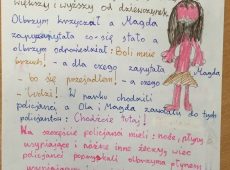 większy i wyższy od dziewczynek.
Olbrzym krzyczał a Magda
zapytała co się stało a
olbrzym odpowiedział: Boli mnie
brzuch! - a dla czego zapytała Magda
- bo się przejadłem! - a czego
- Ludzi! W parku chodzili
policjanci a Ola i Magda zawołały do tych
policjantów: Chodźcie tutaj!
Na szczęście policjanci mieli: noże, płyny
usypiające i różne inne rzeczy, więc
policjanci popsykali olbrzyma płynem